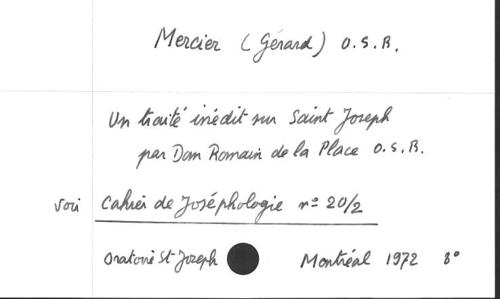 Mercier (Gérard) O.S.B.
Un traité inédit sur Saint Joseph
par Dom Romain de la Place O.S.B.
voir Cahier de Joséphologie n= 20/2
Oratoire St-Joseph Montréal 1972 8°